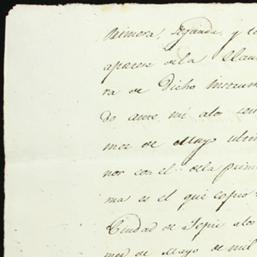 Primera, Segunda, y
aparese de la Clau
ra de Dicho instrum
do ante mi a los
mes de Mayo ultim
nor con el de la prim
ma es el que copio
Ciudad de Tepic a los
mes de Mayo de mil